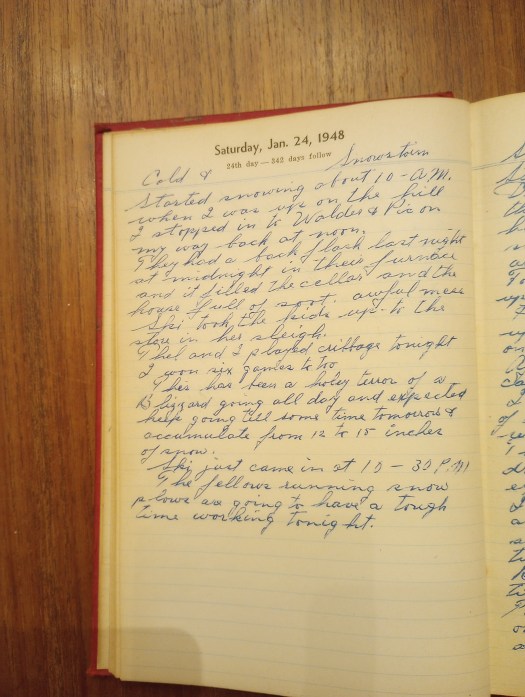 Saturday, Jan. 24, 1948
24th day — 342 days follow
Cold & Snowstorm
Started snowing about 10-A.M.
when I was up on the hill
I stopped in to Walder & Pic on
my way back at noon.
They had a back flash last night
at midnight in their furnace
and it filled the cellar and the
house full of soot. awful mess
Ski took the kids up to the
store in her sleigh.
Thel and I played cribbage tonight
I won six games to two
This has been a holey terror of a
Blizzard going all day and expected
keep going till some time tomorrow &
accumulate from 12 to 15 inches
of snow.
Ski just came in at 10-30 P.M
The fellows running snow
plows are going to have a tough
time working tonight.